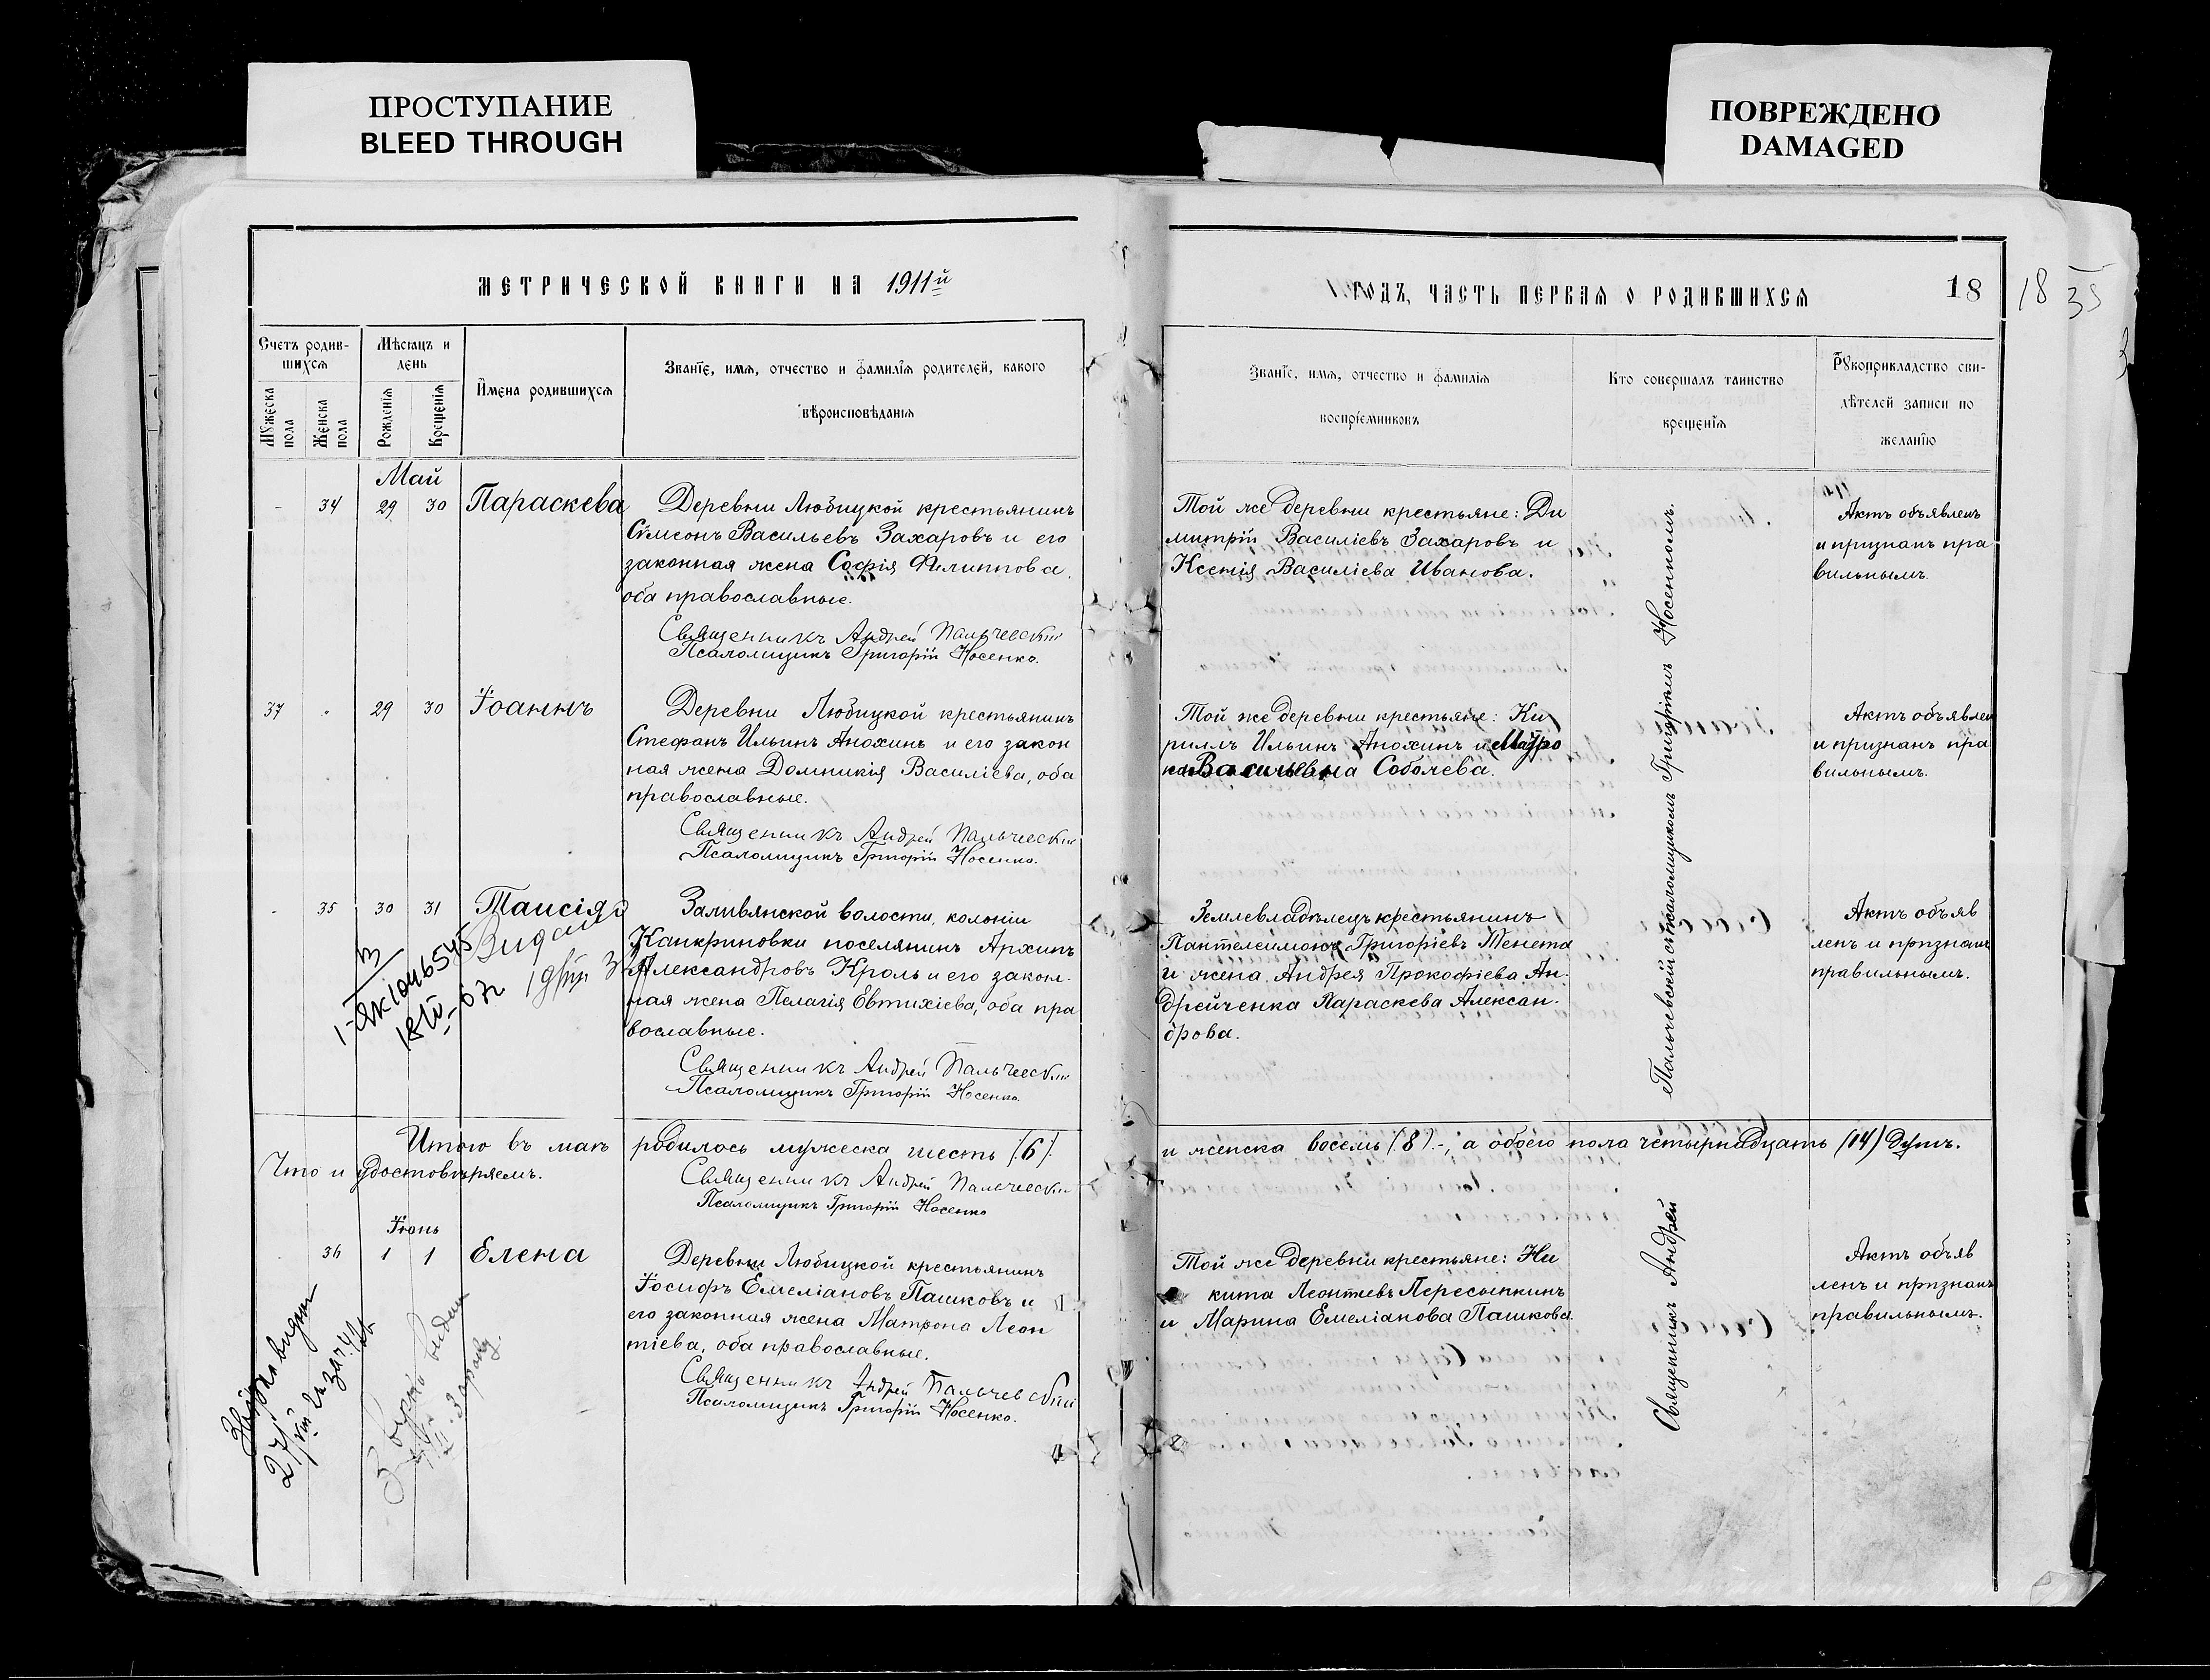 ПРОСТУПАНИЕ
BLEED THROUGH
ПОВРЕЖДЕНО
DAMAGED
МЕТРИЧЕСКОЙ КНИГИ НА 1911й
Счетъ родив-
шихся
Мѣсяцъ и
день
Мужеска
пола
Женска
пола
Рожденія
Крещенія
Имена родившихся
Званіе, имя, отчество и фамилія родителей, какого
вѣроисповѣданія
Май
34 29 30 Параскева
Деревни Любицкой крестьянинъ
Сѵмеонъ Васильевъ Захаровъ и его
законная жена Софія Филиппова,
оба православные.
Священникъ Андрей Пальчевскій
Псаломщикъ Григорій Носенко.
37 " 29 30 Іоаннъ
Деревни Любицкой крестьянинъ
Стефанъ Ильинъ Анохинъ и его закон
ная жена Домникія Василіева, оба
православные.
Священникъ Андрей Пальчевскій
Псаломщикъ Григорій Носенко.
- 35 30 31 Таисія
Заливянской волости, колоніи
Канкриновки поселянинъ Архипъ
Александровъ Кроль и его закон-
ная жена Пелагія Евтихіева, оба пра
вославные.
Священникъ Андрей Пальчевскій
Псаломщикъ Григорій Носенко.
Итого въ маѣ родилось мужеска шесть (6)
Что и удостовѣряемъ.
Священникъ Андрей Пальчевскій
Псаломщикъ Григорій Носенко
Іюнь
36 1 1 Елена
Деревни Любицкой крестьянинъ
Іосифъ Емеліановъ Пашковъ и
его законная жена Матрона Леон
тіева, оба православные.
Священникъ Андрей Пальчевскій
Псаломщикъ Григорій Носенко.
ГОДЪ, ЧАСТЬ ПЕРВАЯ О РОДИВШИХСЯ
18
18
35
Званіе, имя, отчество и фамилія
воспріемниковъ
Кто совершалъ таинство
крещенія
Рукоприкладство сви-
дѣтелей записи по
желанію
Той же деревни крестьяне: Ди
митрій Василіевъ Захаровъ и
Ксенія Василіева Иванова.
Актъ объявленъ
и признанъ пра
вильнымъ.
Той же деревни крестьяне: Ки
риллъ Ильинъ Анохинъ и Матро
на Васильевна Соболева.
Актъ объявлен
и признанъ пра
вильнымъ.
Землевладѣлецъ крестьянинъ
Пантелеимонъ Григоріевъ Тенета
и жена Андрея Прокофіева Ан-
дрейченка Параскева Алексан-
дрова.
Актъ объяв
ленъ и признанъ
правильнымъ.
и женска восемь (8) -, а обоего пола четырнадцать (14) душъ.
Той же деревни крестьяне: Ни
кита Леонтіевъ Пересыпкинъ
и Марина Емеліанова Пашкова.
Актъ объяв
ленъ и признанъ
правильнымъ.
Священникъ Андрей
Пальчевскій съ псаломщикомъ Григоріемъ Носенкомъ.